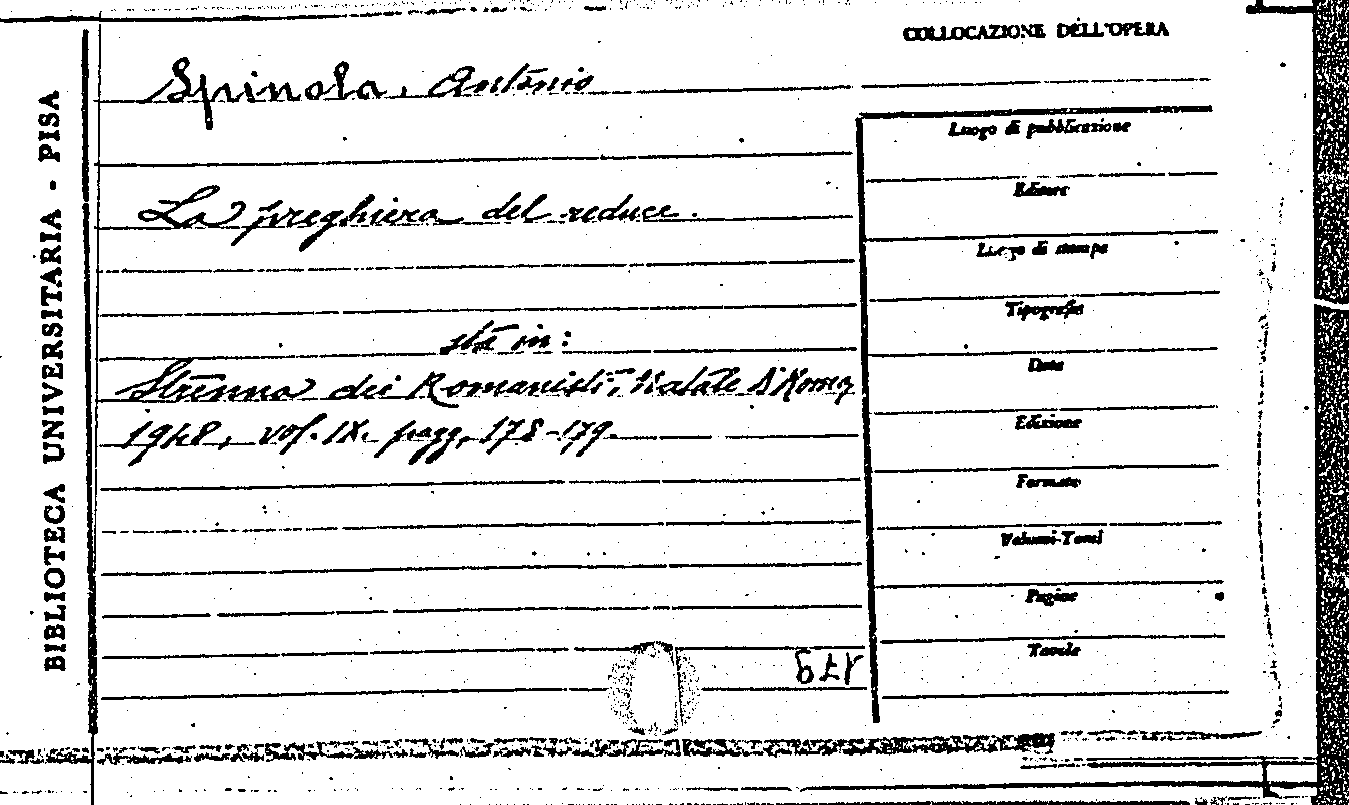 COLLOCAZIONE DELL'OPERA
Spinola, Antonio
La preghiera del reduce.
sta in:
Strenna dei Romanisti, Natale di Roma
1948, vol. IX. pagg. 178-179.
Luogo di pubblicazione
Editore
Luogo di stampa
Tipografia
Data
Edizione
Formato
Volumi-Tomi
Pagine
Tavole
BIBLIOTECA UNIVERSITARIA - PISA